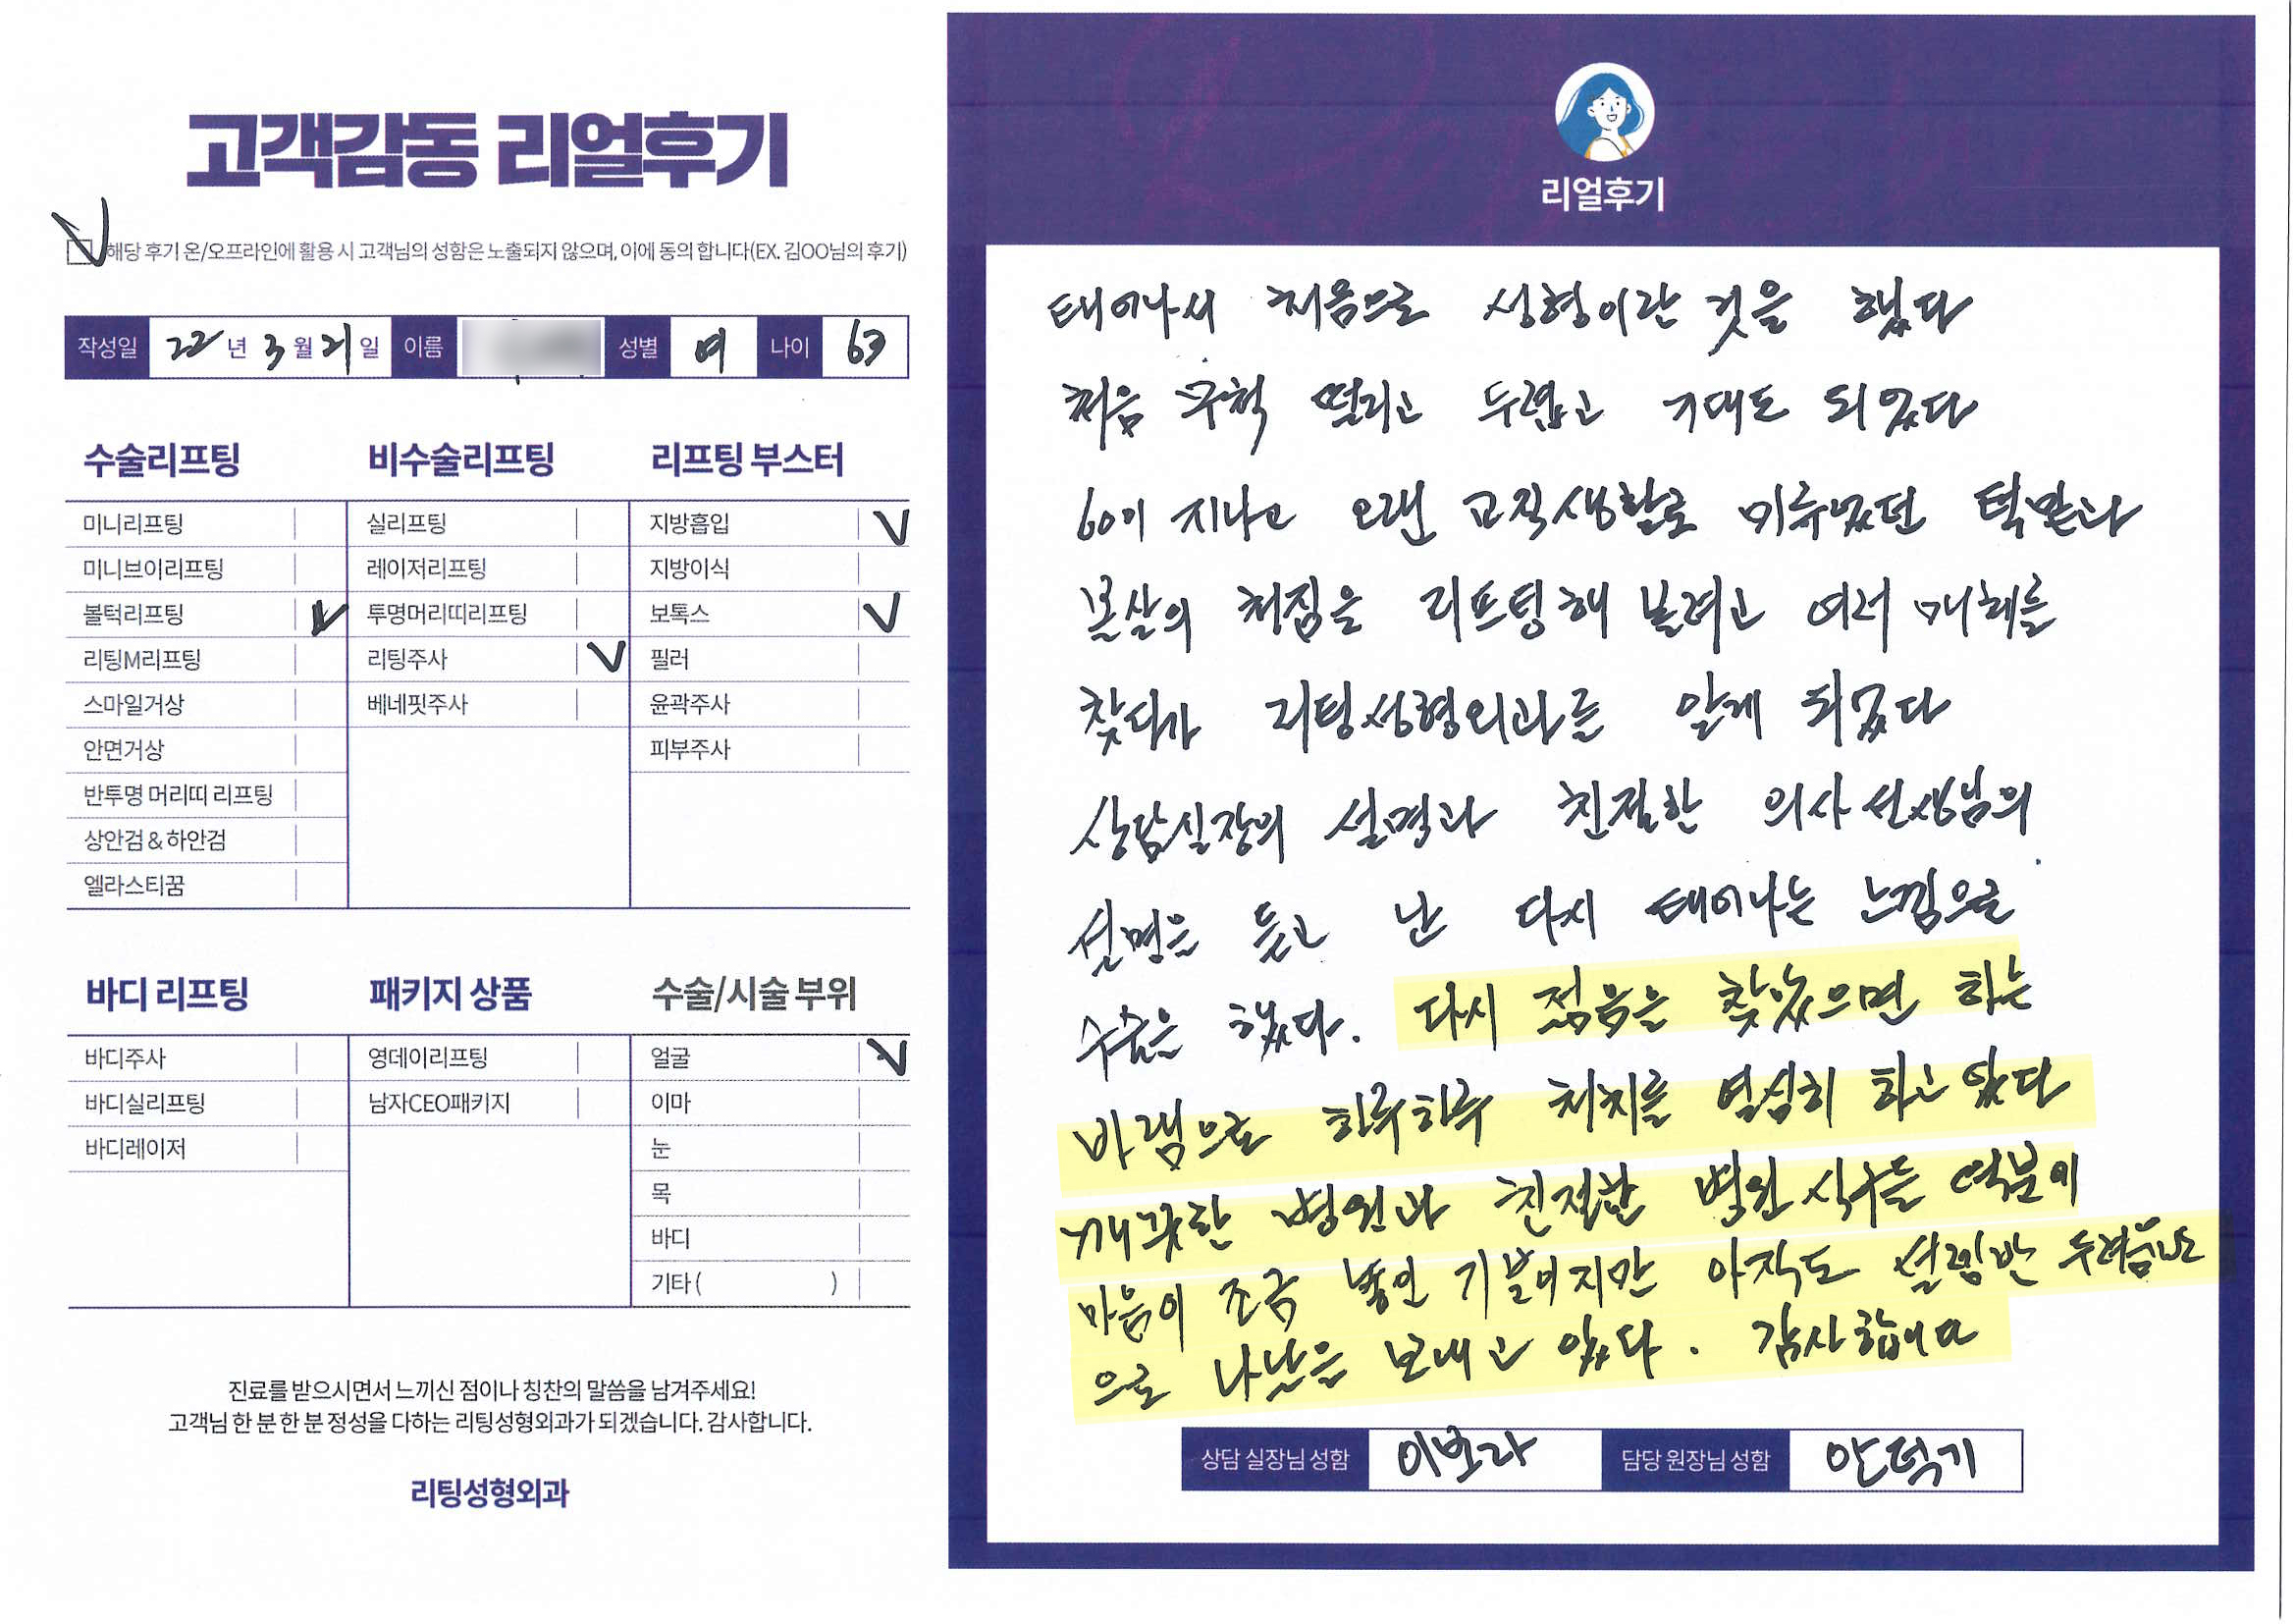 고객감동 리얼후기
해당 후기 온/오프라인에 활용 시 고객님의 성함은 노출되지 않으며, 이에 동의 합니다(EX. 김OO님의 후기)
작성일 22년 3월 21일 이름 성별 여 나이 63
수술리프팅
미니리프팅
미니브이리프팅
볼턱리프팅
리팅M리프팅
스마일거상
안면거상
반투명 머리띠 리프팅
상안검 & 하안검
엘라스티꿈
비수술리프팅
실리프팅
레이저리프팅
투명머리띠리프팅
리팅주사
베네핏주사
리프팅 부스터
지방흡입
지방이식
보톡스
필러
윤곽주사
피부주사
바디 리프팅
바디주사
바디실리프팅
바디레이저
패키지 상품
영데이리프팅
남자CEO패키지
수술/시술 부위
얼굴
이마
눈
목
바디
기타 ( )
진료를 받으시면서 느끼신 점이나 칭찬의 말씀을 남겨주세요!
고객님 한 분 한 분 정성을 다하는 리팅성형외과가 되겠습니다. 감사합니다.
리팅성형외과
리얼후기
태어나서 처음으로 성형이란 것을 했다
처음 무척 떨리고 두렵고 기대도 되었다
60이 지나고 오랜 교직생활로 미루었던 턱밑과
볼살의 처짐을 리프팅해 볼려고 여러 매체를
찾다가 리팅성형외과를 알게 되었다
상담실장의 설명과 친절한 의사 선생님의
설명을 듣고 난 다시 태어나는 느낌으로
수술을 했다. 다시 젊음을 찾았으면 하는
바램으로 하루하루 처치를 열심히 하고 있다
깨끗한 병원과 친절한 병원 식구들 덕분에
마음이 조금 놓인 기분이지만 아직도 설렘반 두려움반
으로 나날을 보내고 있다. 감사합니다
상담 실장님 성함 이보라 담당 원장님 성함 안덕기